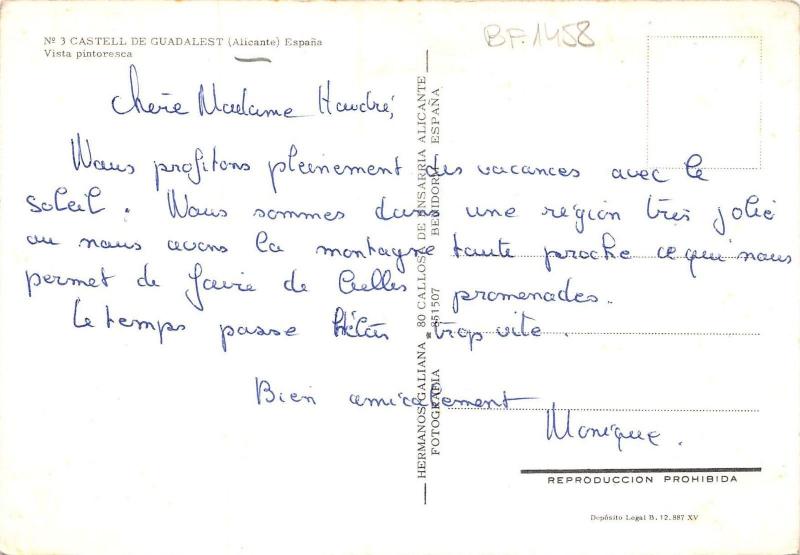 Nº 3 CASTELL DE GUADALEST (Alicante) España
Vista pintoresca
BF.1458
Chère Madame Haudré,
Nous profitons pleinement des vacances avec le
soleil. Nous sommes dans une région très jolie
ou nous avons la montagne toute proche ce qui nous
permet de faire de belles promenades.
Le temps passe hélas trop vite.
Bien amicalement
Monique.
HERMANOS GALIANA 80 CALLOSA DE ENSARRIA ALICANTE
FOTOGRAFIA 851507 BENIDORM ESPAÑA
REPRODUCCION PROHIBIDA
Depósito Legal B. 12.887 XV